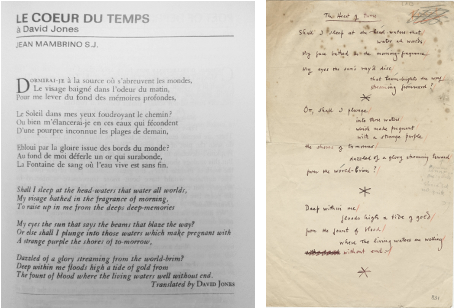 LE COEUR DU TEMPS
à David Jones
JEAN MAMBRINO S.J.
DORMERAI-JE à la source où s'abreuvent les mondes,
Le visage baigné dans l'odeur du matin,
Pour me lever du fond des mémoires profondes,
Le Soleil dans mes yeux foudroyant le chemin?
Ou bien m'élancerai-je en ces eaux qui fécondent
D'une pourpre inconnue les plages de demain,
Ebloui par la gloire issue des bords du monde?
Au fond de moi déferle un or qui surabonde,
La Fontaine de sang où l'eau vive est sans fin.
Shall I sleep at the head-waters that water all worlds,
My visage bathed in the fragrance of morning,
To raise up in me from the deeps deep-memories
My eyes the sun that says the beams that blaze the way?
Or else shall I plunge into those waters which make pregnant with
A strange purple the shores of to-morrow,
Dazzled of a glory streaming from the world-brim?
Deep within me floods high a tide of gold from
The fount of blood where the living waters well without end.
Translated by DAVID JONES
The Heart of Time
Shall I sleep at the head-waters that
water all worlds
My face bathed in the morning fragrance
My eyes the sun's rays
Or, shall I plunge
into those waters
which make pregnant
with a strange purple
the shores of to-morrow
dazzled of a glory streaming
from the world-brim?
Deep within me
floods high a tide of gold
from the fount of blood
where the living waters
without end